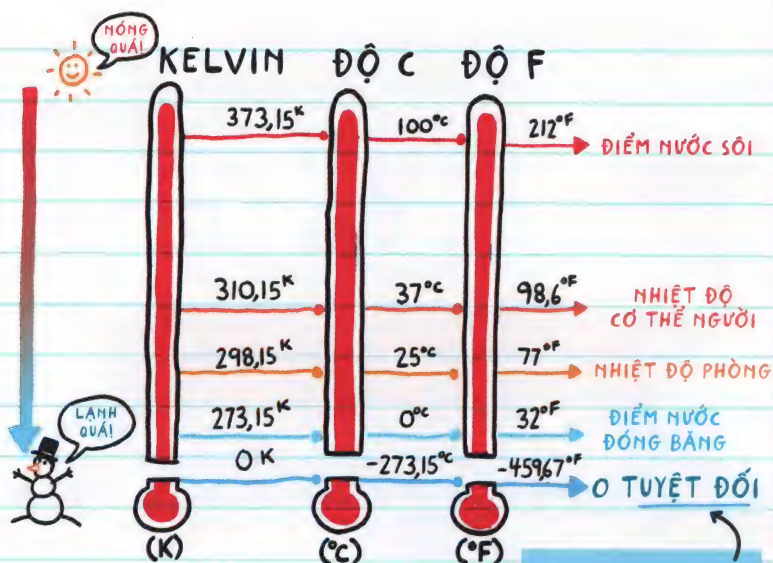 NÓNG
QUÁ!
KELVIN ĐỘ C ĐỘ F
373,15 K 100°C 212°F
ĐIỂM NƯỚC SÔI
310,15 K 37°C 98,6°F
NHIỆT ĐỘ
CƠ THỂ NGƯỜI
298,15 K 25°C 77°F
NHIỆT ĐỘ PHÒNG
LẠNH
QUÁ!
273,15 K 0°C 32°F
ĐIỂM NƯỚC
ĐÓNG BĂNG
0 K -273,15°C -459,67°F
0 TUYỆT ĐỐI
(K) (°C) (°F)